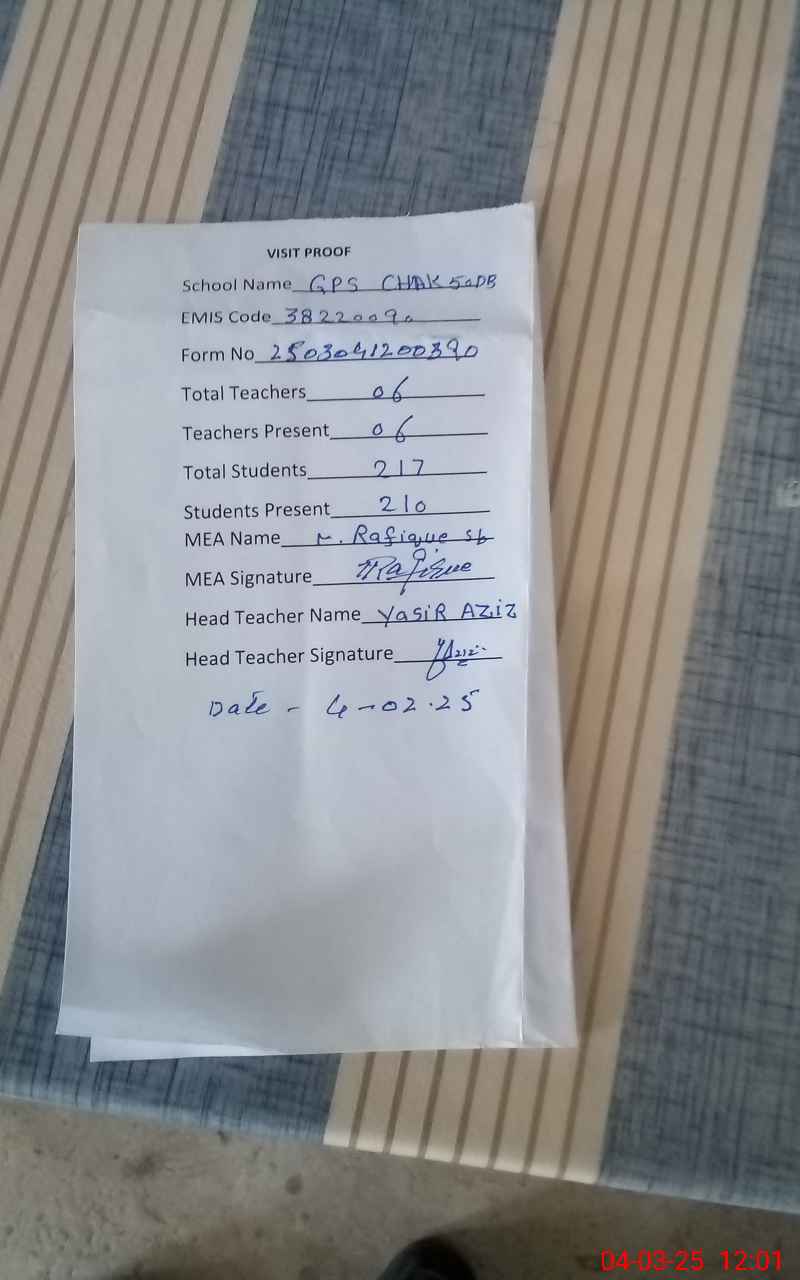 VISIT PROOF
School Name GPS CHAK 50DB
EMIS Code 38220090
Form No 2503041200390
Total Teachers 06
Teachers Present 06
Total Students 217
Students Present 210
MEA Name M. Rafique sb
MEA Signature Rafique
Head Teacher Name YasiR AZiZ
Head Teacher Signature
Date - 4-02.25
04-03-25 12:01